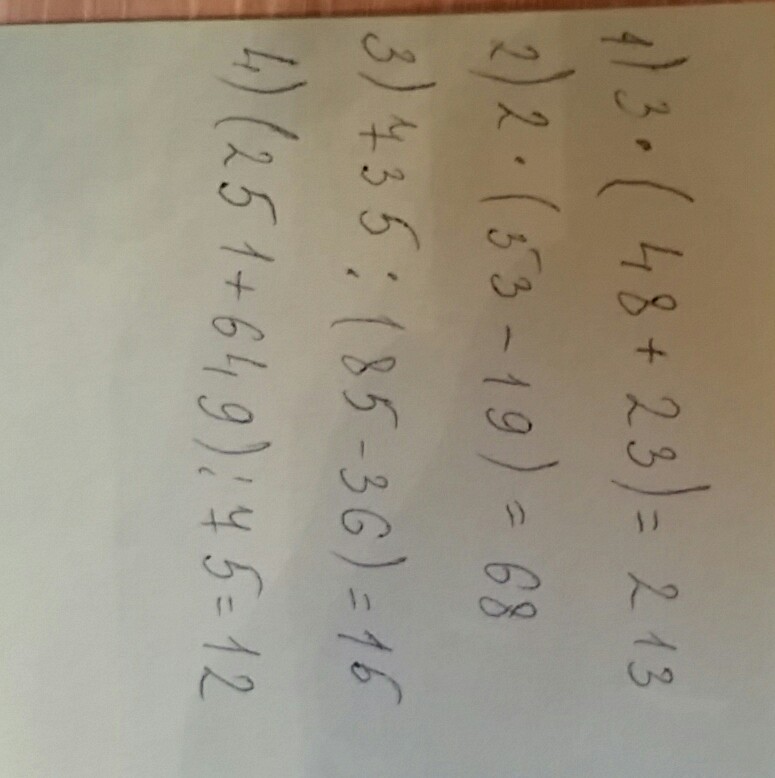 1) 3·(48+23)=213
2) 2·(53-19)=68
3) 735:(85-36)=15
4) (251+649):75=12